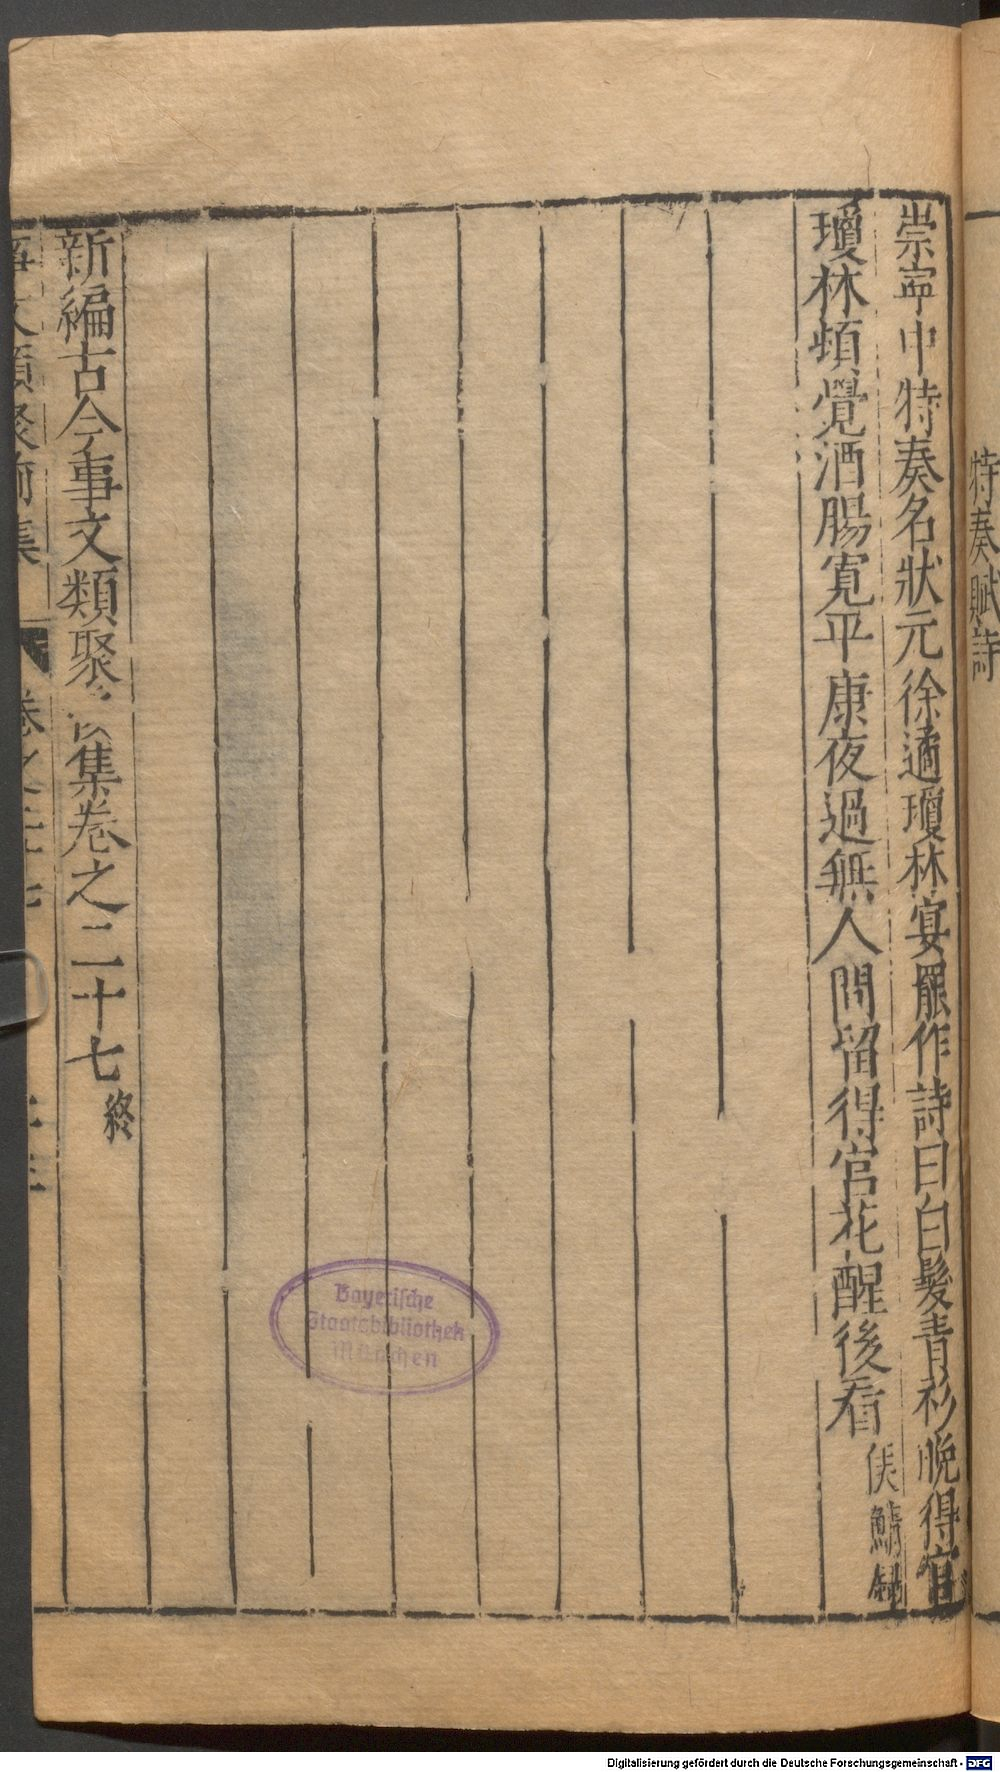 特奏賦詩
崇寧中特奏名狀元徐遹瓊林宴罷作詩曰白髮青衫晚得官
瓊林頓覺酒腸寬平康夜過無人問留得宮花醒後看
侯鯖錄
新編古今事文類聚 集卷之二十七
終
事文類聚前集
卷之二十七
二十三
Bayerische
Staatsbibliothek
München
Digitalisierung gefördert durch die Deutsche Forschungsgemeinschaft - DFG